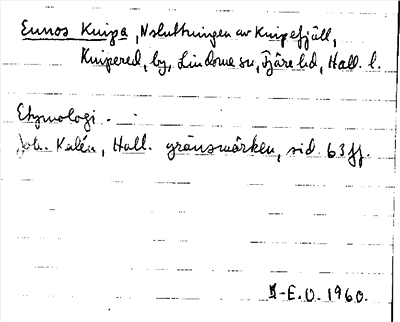 Ennos Knipa, Nsluttningen av Knipefjäll,
Knipered, by, Lindome sn, Fjäre hd, Hall. l.
Etymologi.
Joh. Kalén, Hall. gränsmärken, sid. 63 ff.
-E.O. 1960.